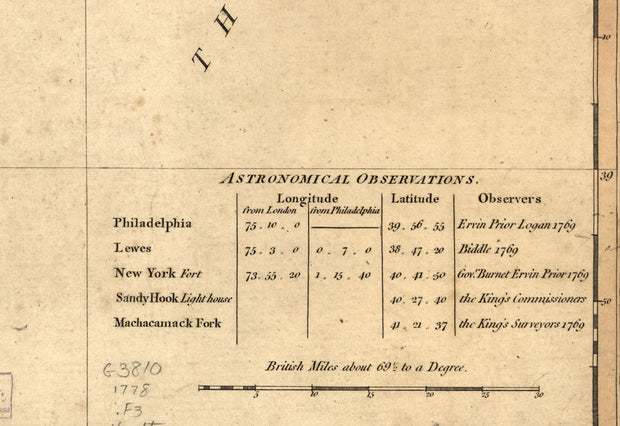 T H
10
39
50
ASTRONOMICAL OBSERVATIONS.
Longitude Latitude Observers
from London from Philadelphia
Philadelphia 75. 10. 0 39. 56. 55 Ervin Prior Logan 1769
Lewes 75. 3. 0 0. 7. 0 38. 47. 20 Biddle 1769
New York Fort 73. 55. 20 1. 15. 40 40. 41. 50 Gov.r Burnet Ervin Prior 1769
Sandy Hook Light house 40. 27. 40 the King's Commissioners
Machacamack Fork 41. 21. 37 the King's Surveyors 1769
British Miles about 69½ to a Degree.
5 10 15 20 25 30
G3810
1778
.F3